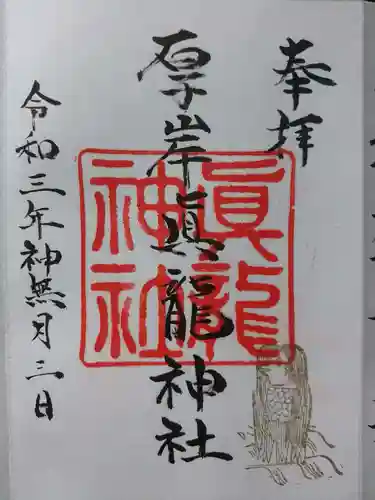 奉拝
厚岸眞龍神社
眞龍
神社
令和三年神無月三日